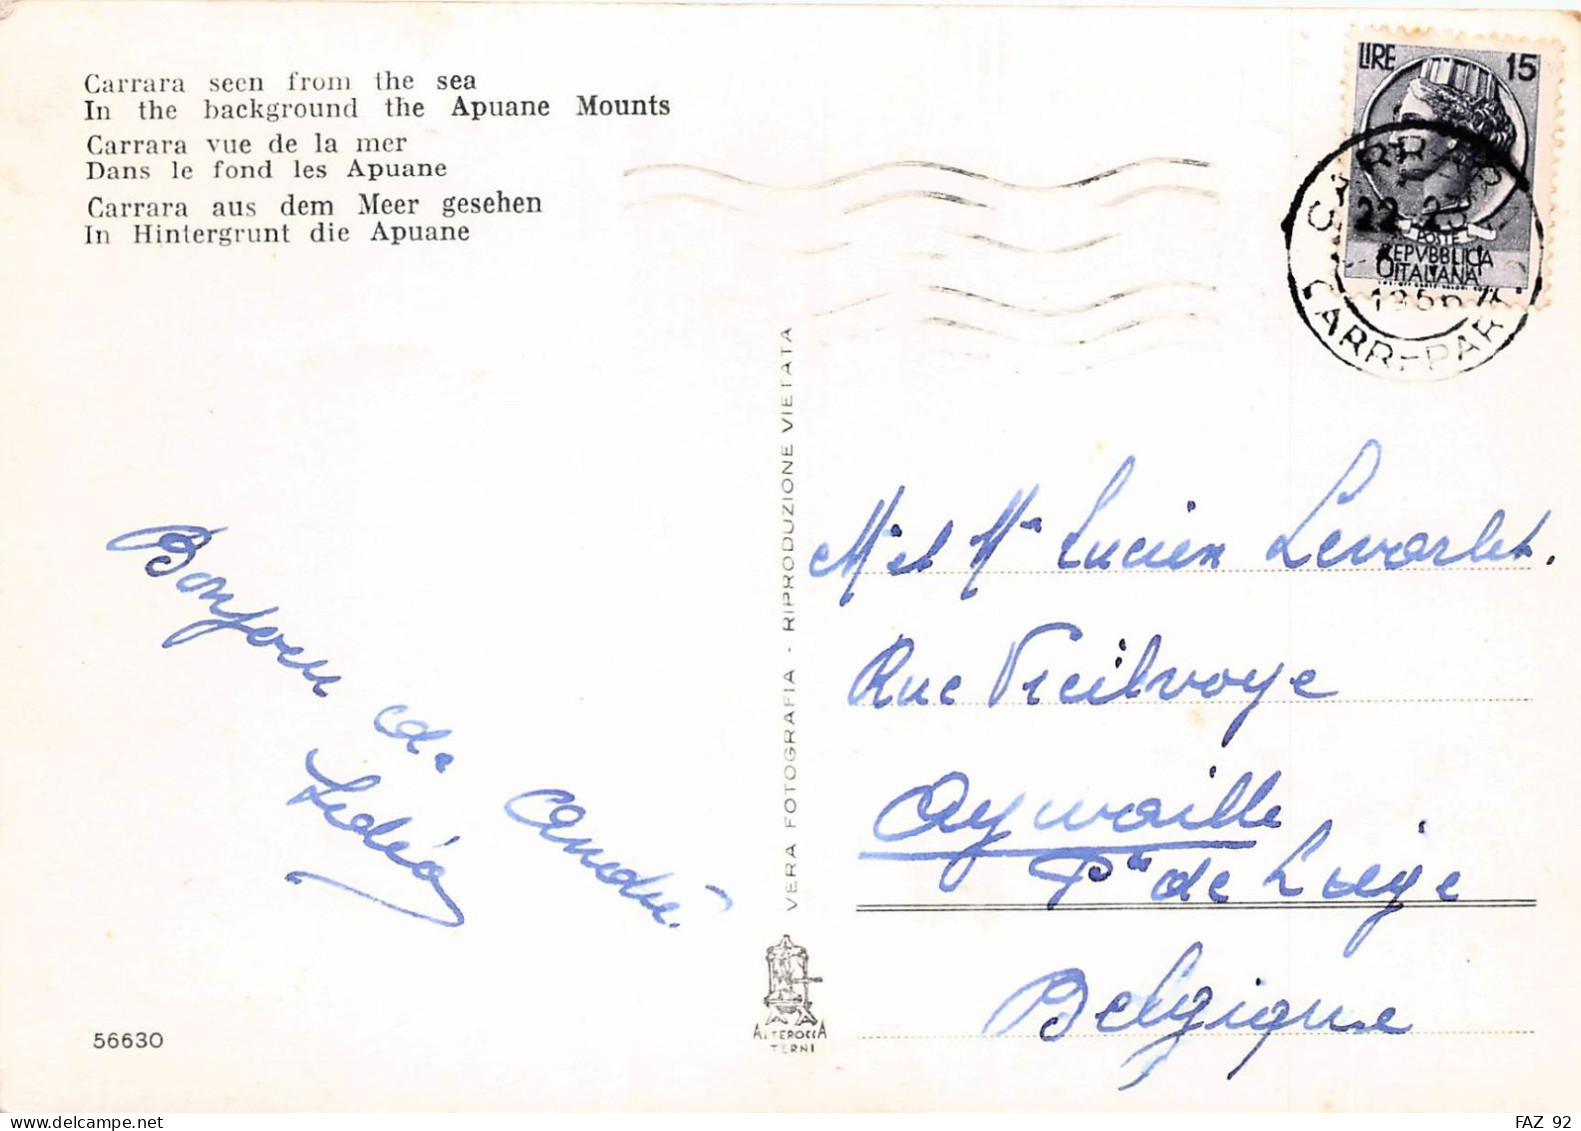 Carrara seen from the sea
In the background the Apuane Mounts
Carrara vue de la mer
Dans le fond les Apuane
Carrara aus dem Meer gesehen
In Hintergrunt die Apuane
LIRE 15
POSTE
REPVBBLICA
ITALIANA
CARRARA
22 23
CARR-PAR
VERA FOTOGRAFIA - RIPRODUZIONE VIETATA
Bonjour de André
Lidéa
Mr et Me Lucien Levarlet.
Rue Vieilvoye
Aywaille
Pce de Liège
Belgique
ALTEROCCA
TERNI
56630
FAZ 92